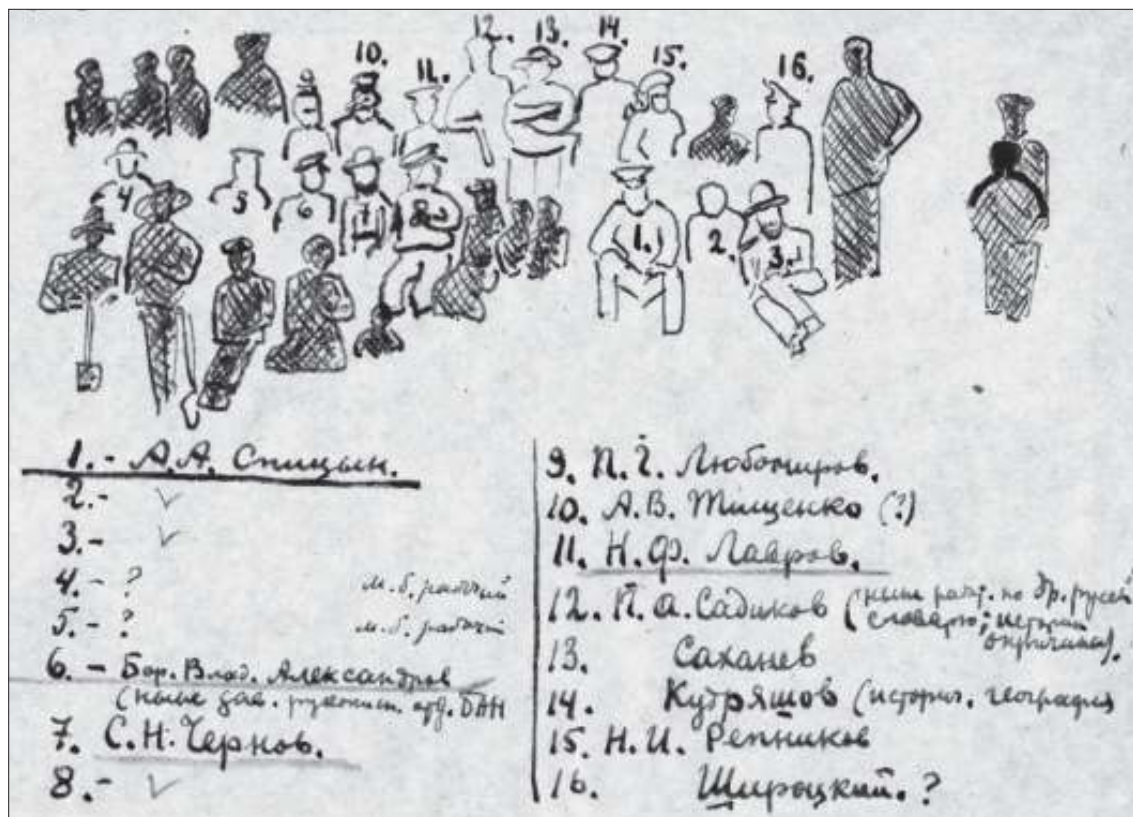 12. 13. 14.
10. 11. 15. 16.
4 5 6 7 8
1. 2. 3.
1.- А.А. Спицын.
2.- ✓
3.- ✓
4.- ? м.б. рабочий
5.- ? м.б. рабочий
6.- Бор. Влад. Александров
(ныне зав. рукописн. отд. БАН
7. С.Н. Чернов.
8.- ✓
9. П.Г. Любомиров.
10. А.В. Тищенко (?)
11. Н.Ф. Лавров.
12. П.А. Садиков (ныне по др. русск
словарю; истории
опричнины).
13. Саханев
14. Кудряшов (историч. география
15. Н.И. Репников
16. Широцкий. ?